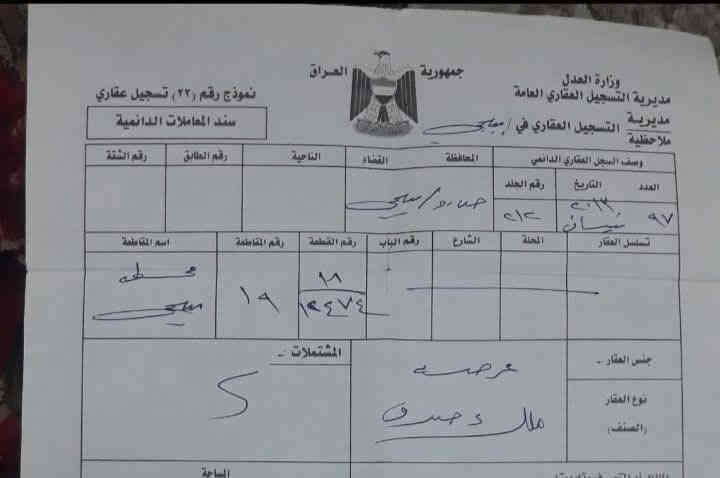 جمهورية العراق
وزارة العدل
مديرية التسجيل العقاري العامة
مديرية
ملاحظية
التسجيل العقاري في /
نموذج رقم (٢٢) تسجيل عقاري
سند المعاملات الدائمية
وصف السجل العقاري الدائمي
المحافظة
القضاء
الناحية
رقم الطابق
رقم الشقة
العدد
التاريخ
رقم الجلد
٩٧
٢٠١٣
نيسان
٢١٢
تسلسل العقار
المحلة
الشارع
رقم الباب
رقم القطعة
رقم المقاطعة
اسم المقاطعة
١٩
جنس العقار -
عرصه
المشتملات -
نوع العقار
(الصنف)
ملك صرف
المساحة